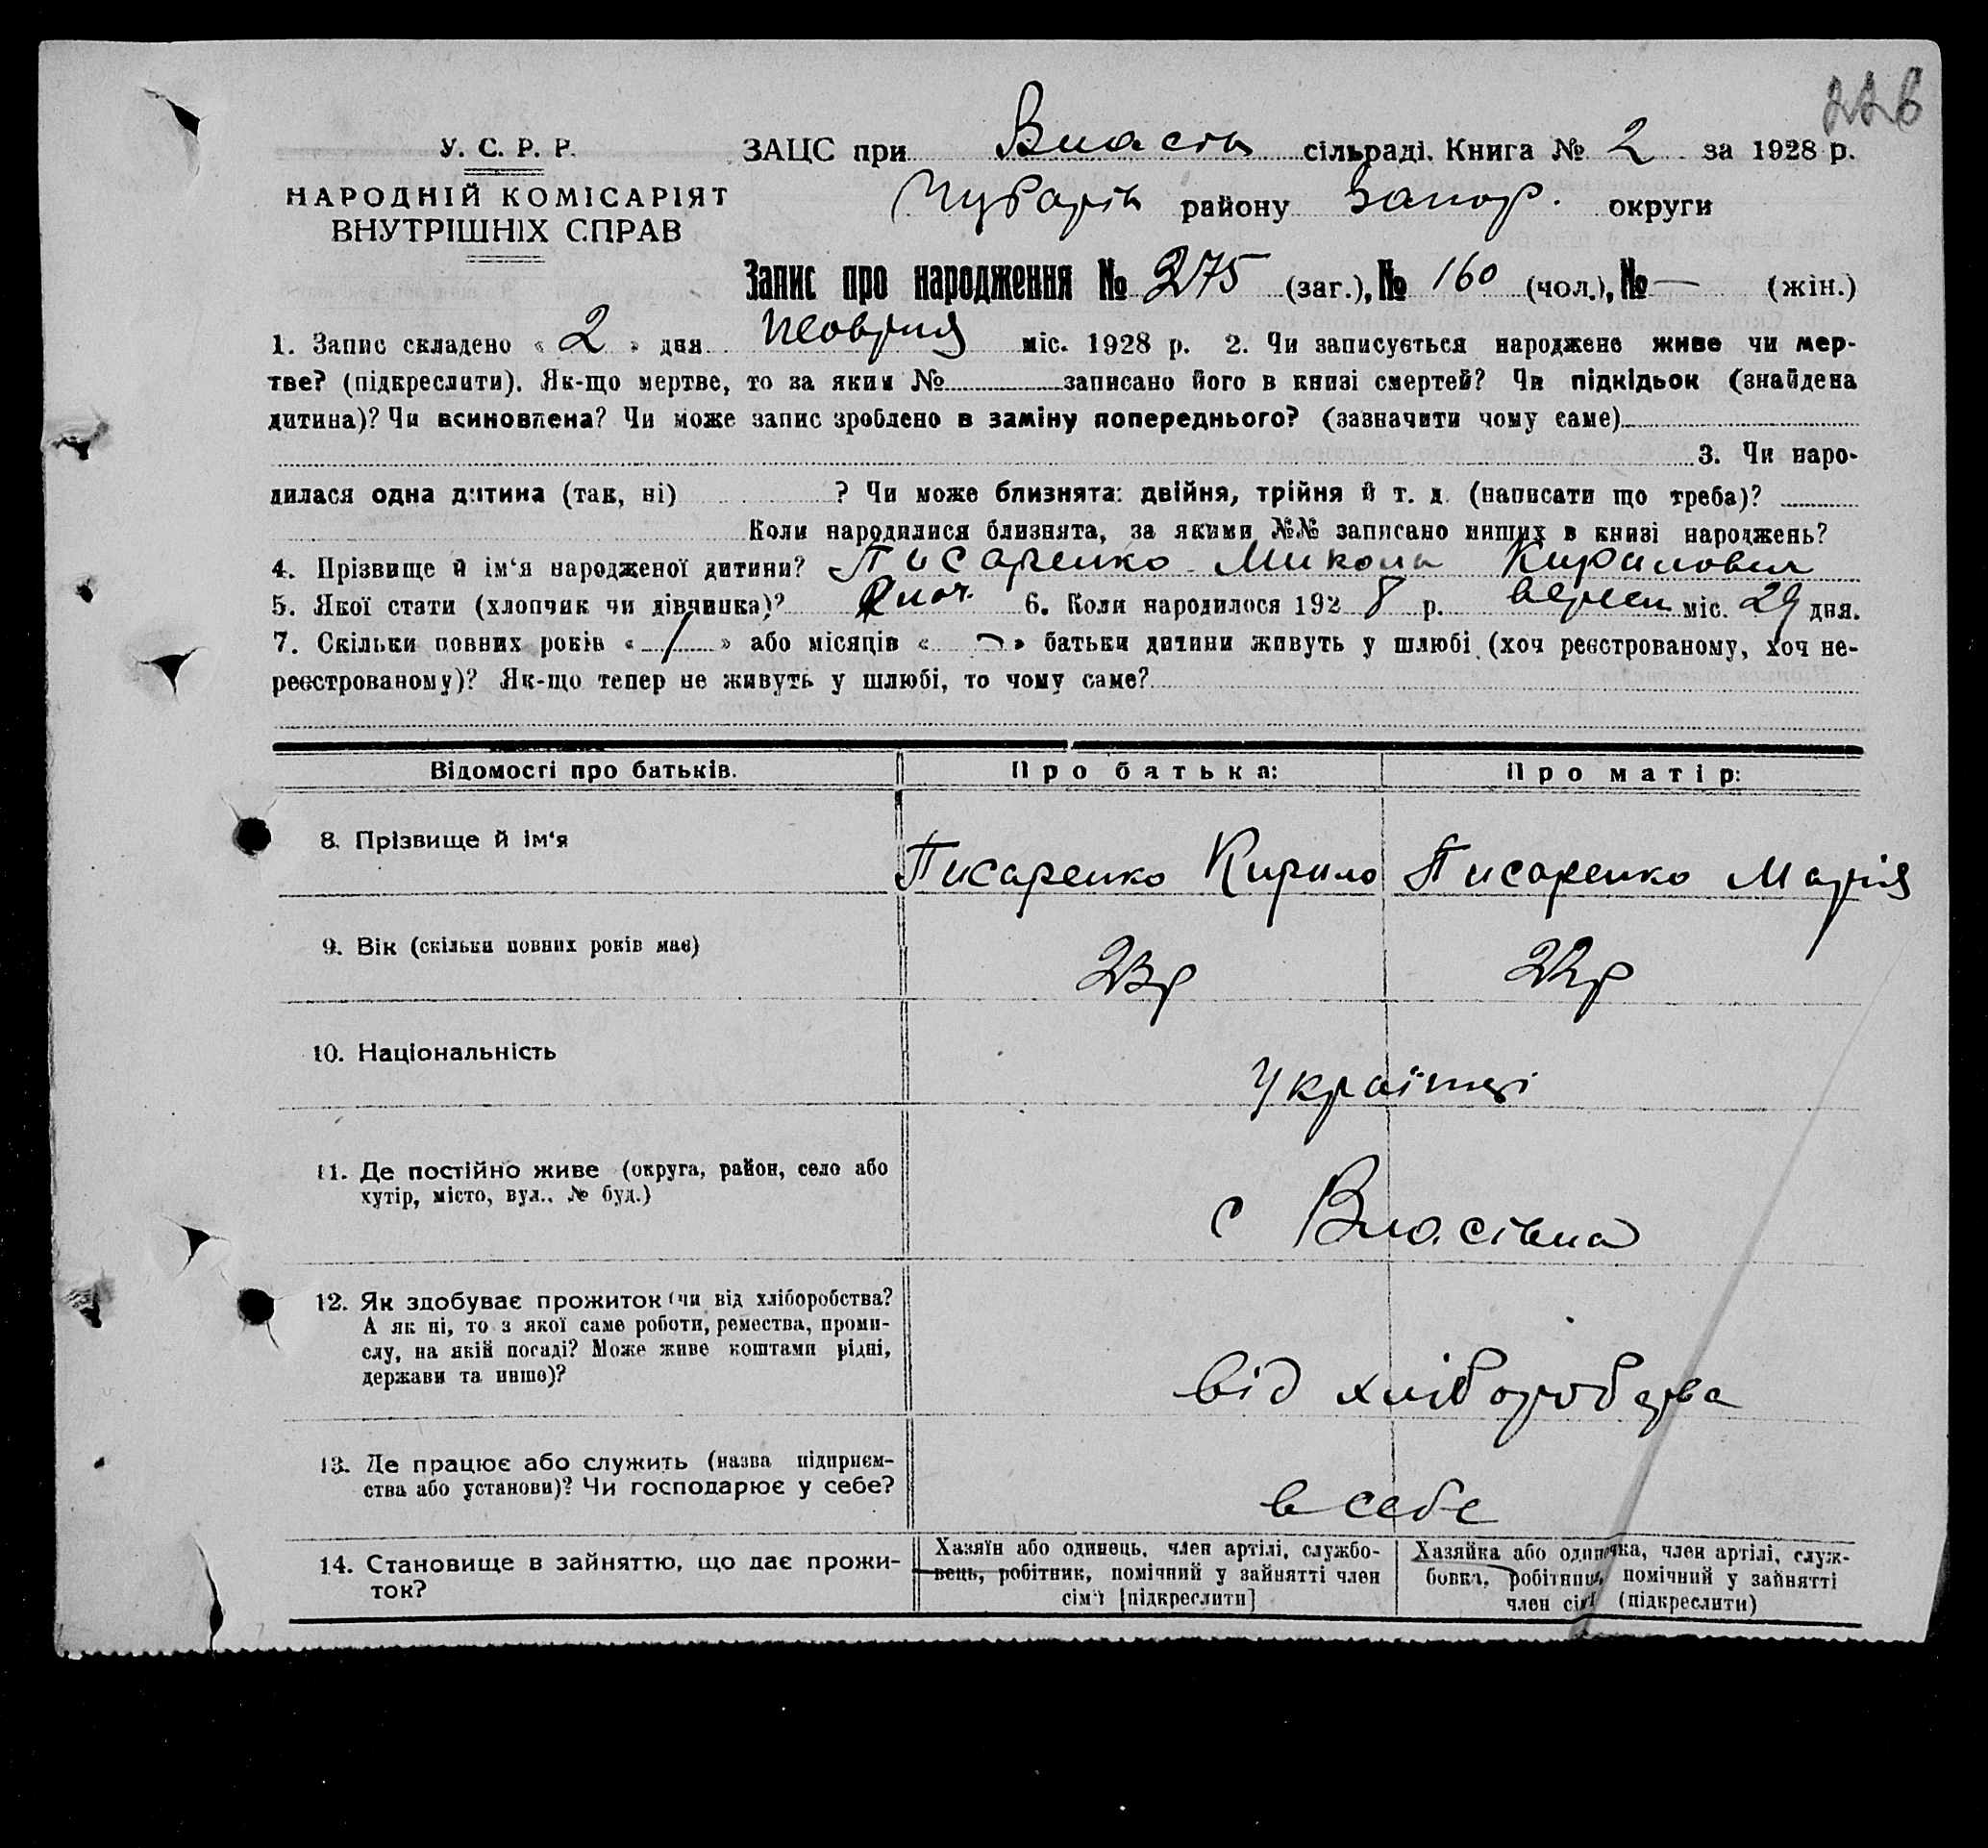 226
У. С. Р. Р.
НАРОДНІЙ КОМІСАРІЯТ
ВНУТРІШНІХ СПРАВ
ЗАЦС при Власів сільраді. Книга № 2 за 1928 р.
Чубарів району Запор. округи
Запис про народження № 275 (заг.), № 160 (чол.), № — (жін.)
1. Запис складено « 2 » дня жовтня міс. 1928 р. 2. Чи записується народжене живе чи мер-
тве? (підкреслити). Як-що мертве, то за яким № записано його в книзі смертей? Чи підкідьок (знайдена
дитина)? Чи всиновлена? Чи може запис зроблено в заміну попереднього? (зазначити чому саме)
3. Чи наро-
дилася одна дитина (так, ні) ? Чи може близнята: двійня, трійня й т. д. (написати що треба)?
Коли народилися близнята, за якими №№ записано инших в книзі народжень?
4. Прізвище й ім'я народженої дитини? Писаренко Микола Кирилович
5. Якої стати (хлопчик чи дівчинка)? хлоч. 6. Коли народилося 192 8 р. вересн міс. 29 дня.
7. Скільки повних років « 1 » або місяців « » батьки дитини живуть у шлюбі (хоч реєстрованому, хоч не-
реєстрованому)? Як-що тепер не живуть у шлюбі, то чому саме?
Відомості про батьків. Про батька: Про матір:
8. Прізвище й ім'я Писаренко Кирило Писаренко Марія
9. Вік (скільки повних років має) 23р 22р
10. Національність українці
11. Де постійно живе (округа, район, село або
хутір, місто, вул., № буд.) с Власівка
12. Як здобуває прожиток (чи від хліборобства?
А як ні, то з якої саме роботи, ремества, проми-
слу, на якій посаді? Може живе коштами рідні,
держави та инше)? від хліборобства
13. Де працює або служить (назва підприєм-
ства або установи)? Чи господарює у себе? в себе
14. Становище в зайняттю, що дає прожи-
ток?
Хазяїн або одинець, член артілі, службо-
вець, робітник, помічний у зайнятті член
сім'ї [підкреслити]
Хазяйка або одиначка, член артілі, служ-
бовка, робітниця, помічний у зайнятті
член сім'ї (підкреслити)